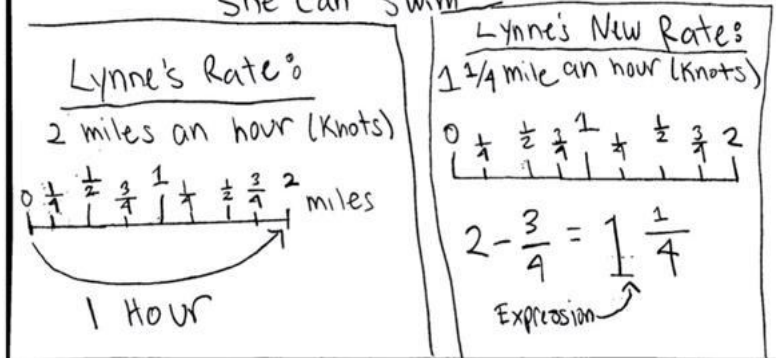 She Can Swim
Lynne's Rate:
2 miles an hour (Knots)
0 1/4 1/2 3/4 1 1/4 1/2 3/4 2 miles
1 Hour
Lynne's New Rate:
1 1/4 mile an hour (Knots)
0 1/4 1/2 3/4 1 1/4 1/2 3/4 2
2 - 3/4 = 1 1/4
Expression